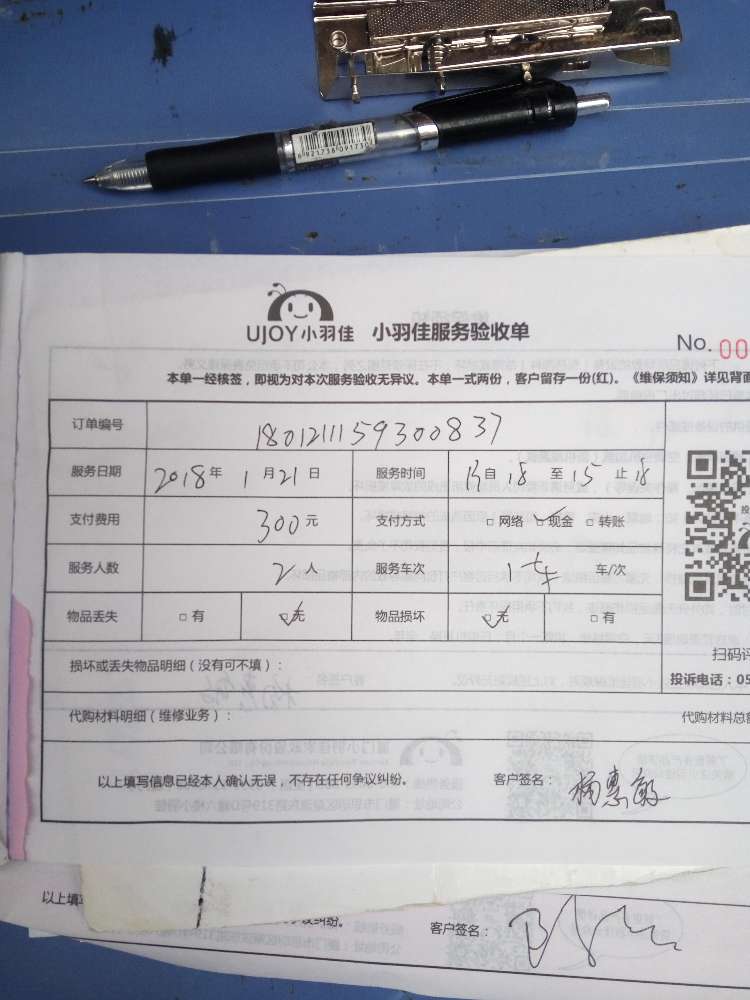 6921738091739
UJOY小羽佳 小羽佳服务验收单
No. 00
本单一经核签，即视为对本次服务验收无异议。本单一式两份，客户留存一份(红)。《维保须知》详见背面
订单编号 180121115930083​7
服务日期 2018年 1月21日 服务时间 自18 至15止18
支付费用 300元 支付方式 □网络 □现金 □转账
服务人数 2人 服务车次 1车 车/次
物品丢失 □有 □无 物品损坏 □无 □有
损坏或丢失物品明细（没有可不填）： 扫码评
投诉电话：05
代购材料明细（维修业务）： 代购材料总额
以上填写信息已经本人确认无误，不存在任何争议纠纷。 客户签名：杨惠敏
以上填
纠纷。 客户签名：